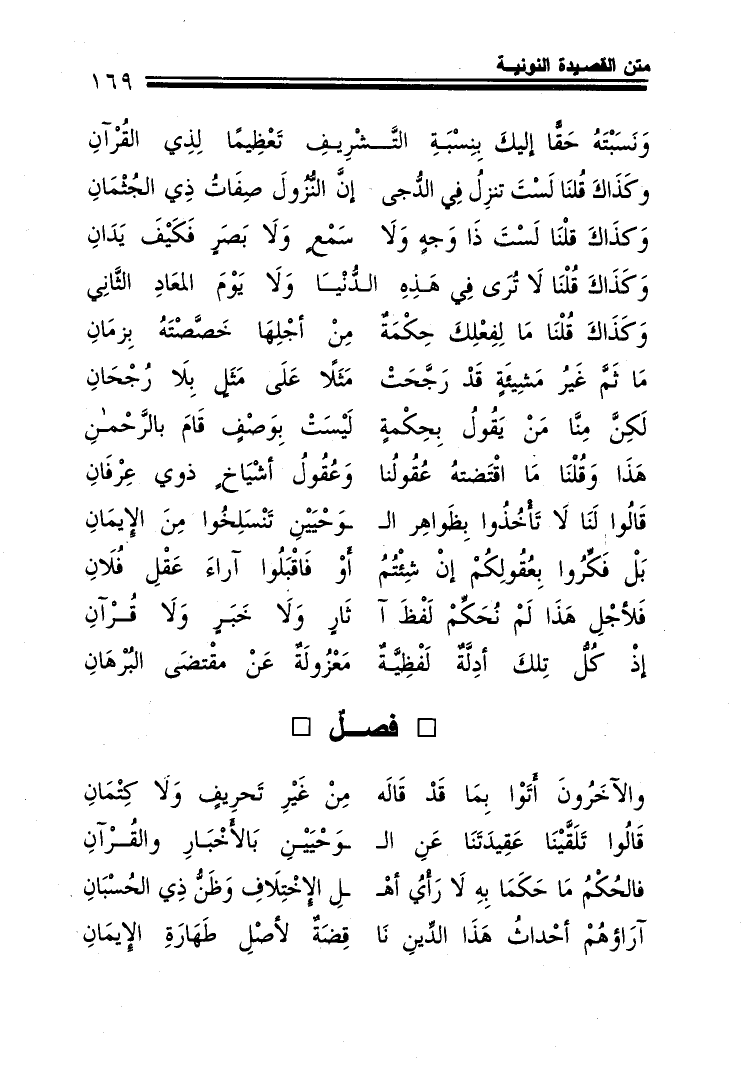 متن القصيدة النونية
١٦٩
وَنَسَبْتَهُ حَقًّا إليكَ بِنِسْبَةِ التَّـشْرِيفِ تَعْظِيمًا لِذِي القُرْآنِ
وكَذَاكَ قُلنَا لَسْتَ تنزِلُ فِي الدُّجى إنَّ النُّزُولَ صِفَاتُ ذِي الجُثْمَانِ
وَكذَاكَ قلْنَا لَسْتَ ذَا وَجهٍ وَلَا سَمْعٍ وَلَا بَصَرٍ فَكَيْفَ يَدَانِ
وَكَذَاكَ قُلْنَا لَا تُرَى فِي هَـذِهِ الـدُّنْيَـا وَلَا يَوْمَ المَعَادِ الثَّانِي
وَكَذَاكَ قُلْنَا مَا لِفِعْلِكَ حِكْمَةٌ مِنْ أجْلِهَا خَصَّصْتَهُ بِزمَانِ
مَا ثَمَّ غَيرُ مَشِيئَةٍ قَدْ رَجَّحَتْ مَثَلًا عَلَى مَثَلٍ بِلَا رُجْحَانِ
لَكِنَّ مِنَّا مَنْ يَقُولُ بِحِكْمةٍ لَيْسَتْ بِوَصْفٍ قَامَ بالرَّحْمٰنِ
هَذَا وَقُلْنَا مَا اقْتَضتهُ عُقُولُنا وَعُقُولُ أشْيَاخٍ ذوي عِرْفَانِ
قَالُوا لَنَا لَا تَأْخُذُوا بِظَواهِرِ الـ ـوَحْيَيْنِ تَنْسَلِخُوا مِنَ الإيمَانِ
بَلْ فَكِّرُوا بِعُقُولِكُمْ إنْ شِئْتُمُ أوْ فَاقْبَلُوا آراءَ عَقْلِ فُلَانِ
فَلأجْلِ هَذَا لَمْ نُحَكِّمْ لَفْظَ آ ثَارٍ وَلَا خَبَرٍ وَلَا قُـرْآنِ
إذْ كُلُّ تِلكَ أدِلَّةٌ لَفْظِيَّـةٌ مَعْزُولَةٌ عَنْ مقْتضَى البُرْهَانِ
□ فصـلٌ □
والآخَرُونَ أَتَوْا بِمَا قَدْ قَالَه مِنْ غَيْرِ تَحرِيفٍ وَلَا كِتْمَانِ
قَالُوا تَلَقَّيْنَا عَقِيدَتَنَا عَنِ الـ ـوَحْيَيْـنِ بَالأَخْبَارِ والقُـرْآنِ
فالحُكْمُ مَا حَكَمَا بِهِ لَا رَأْيُ أهْـ ـلِ الإخْتِلَافِ وَظَنُّ ذِي الحُسْبَانِ
آرَاؤهُمْ أحْداثُ هَذَا الدِّينِ نَا قِضَةٌ لأصْلِ طَهَارَةِ الإيمَانِ